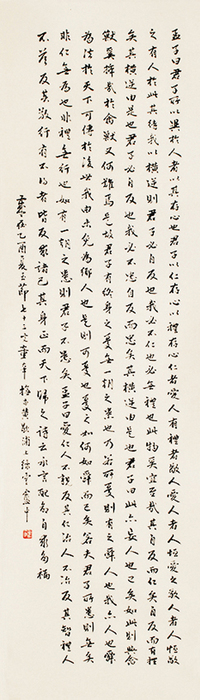 孟子曰君子所以異於人者以其存心也君子以仁存心以禮存心仁者愛人有禮者敬人愛人者人恆愛之敬人者人恆敬
之有人於此其待我以橫逆則君子必自反也我必不仁也必無禮也此物奚宜至哉其自反而仁矣自反而有禮
矣其橫逆由是也君子必自反也我必不忠自反而忠矣其橫逆由是也君子曰此亦妄人也已矣如此則與禽
獸奚擇哉於禽獸又何難焉是故君子有終身之憂無一朝之患也乃若所憂則有之舜人也我亦人也舜
為法於天下可傳於後世我由未免為鄉人也是則可憂也憂之如何如舜而已矣若夫君子所患則亡矣
非仁無為也非禮無行也如有一朝之患則君子不患矣孟子曰愛人不親反其仁治人不治反其智禮人
不答反其敬行有不得者皆反求諸己其身正而天下歸之詩云永言配命自求多福
歲在乙酉夏至節七十二